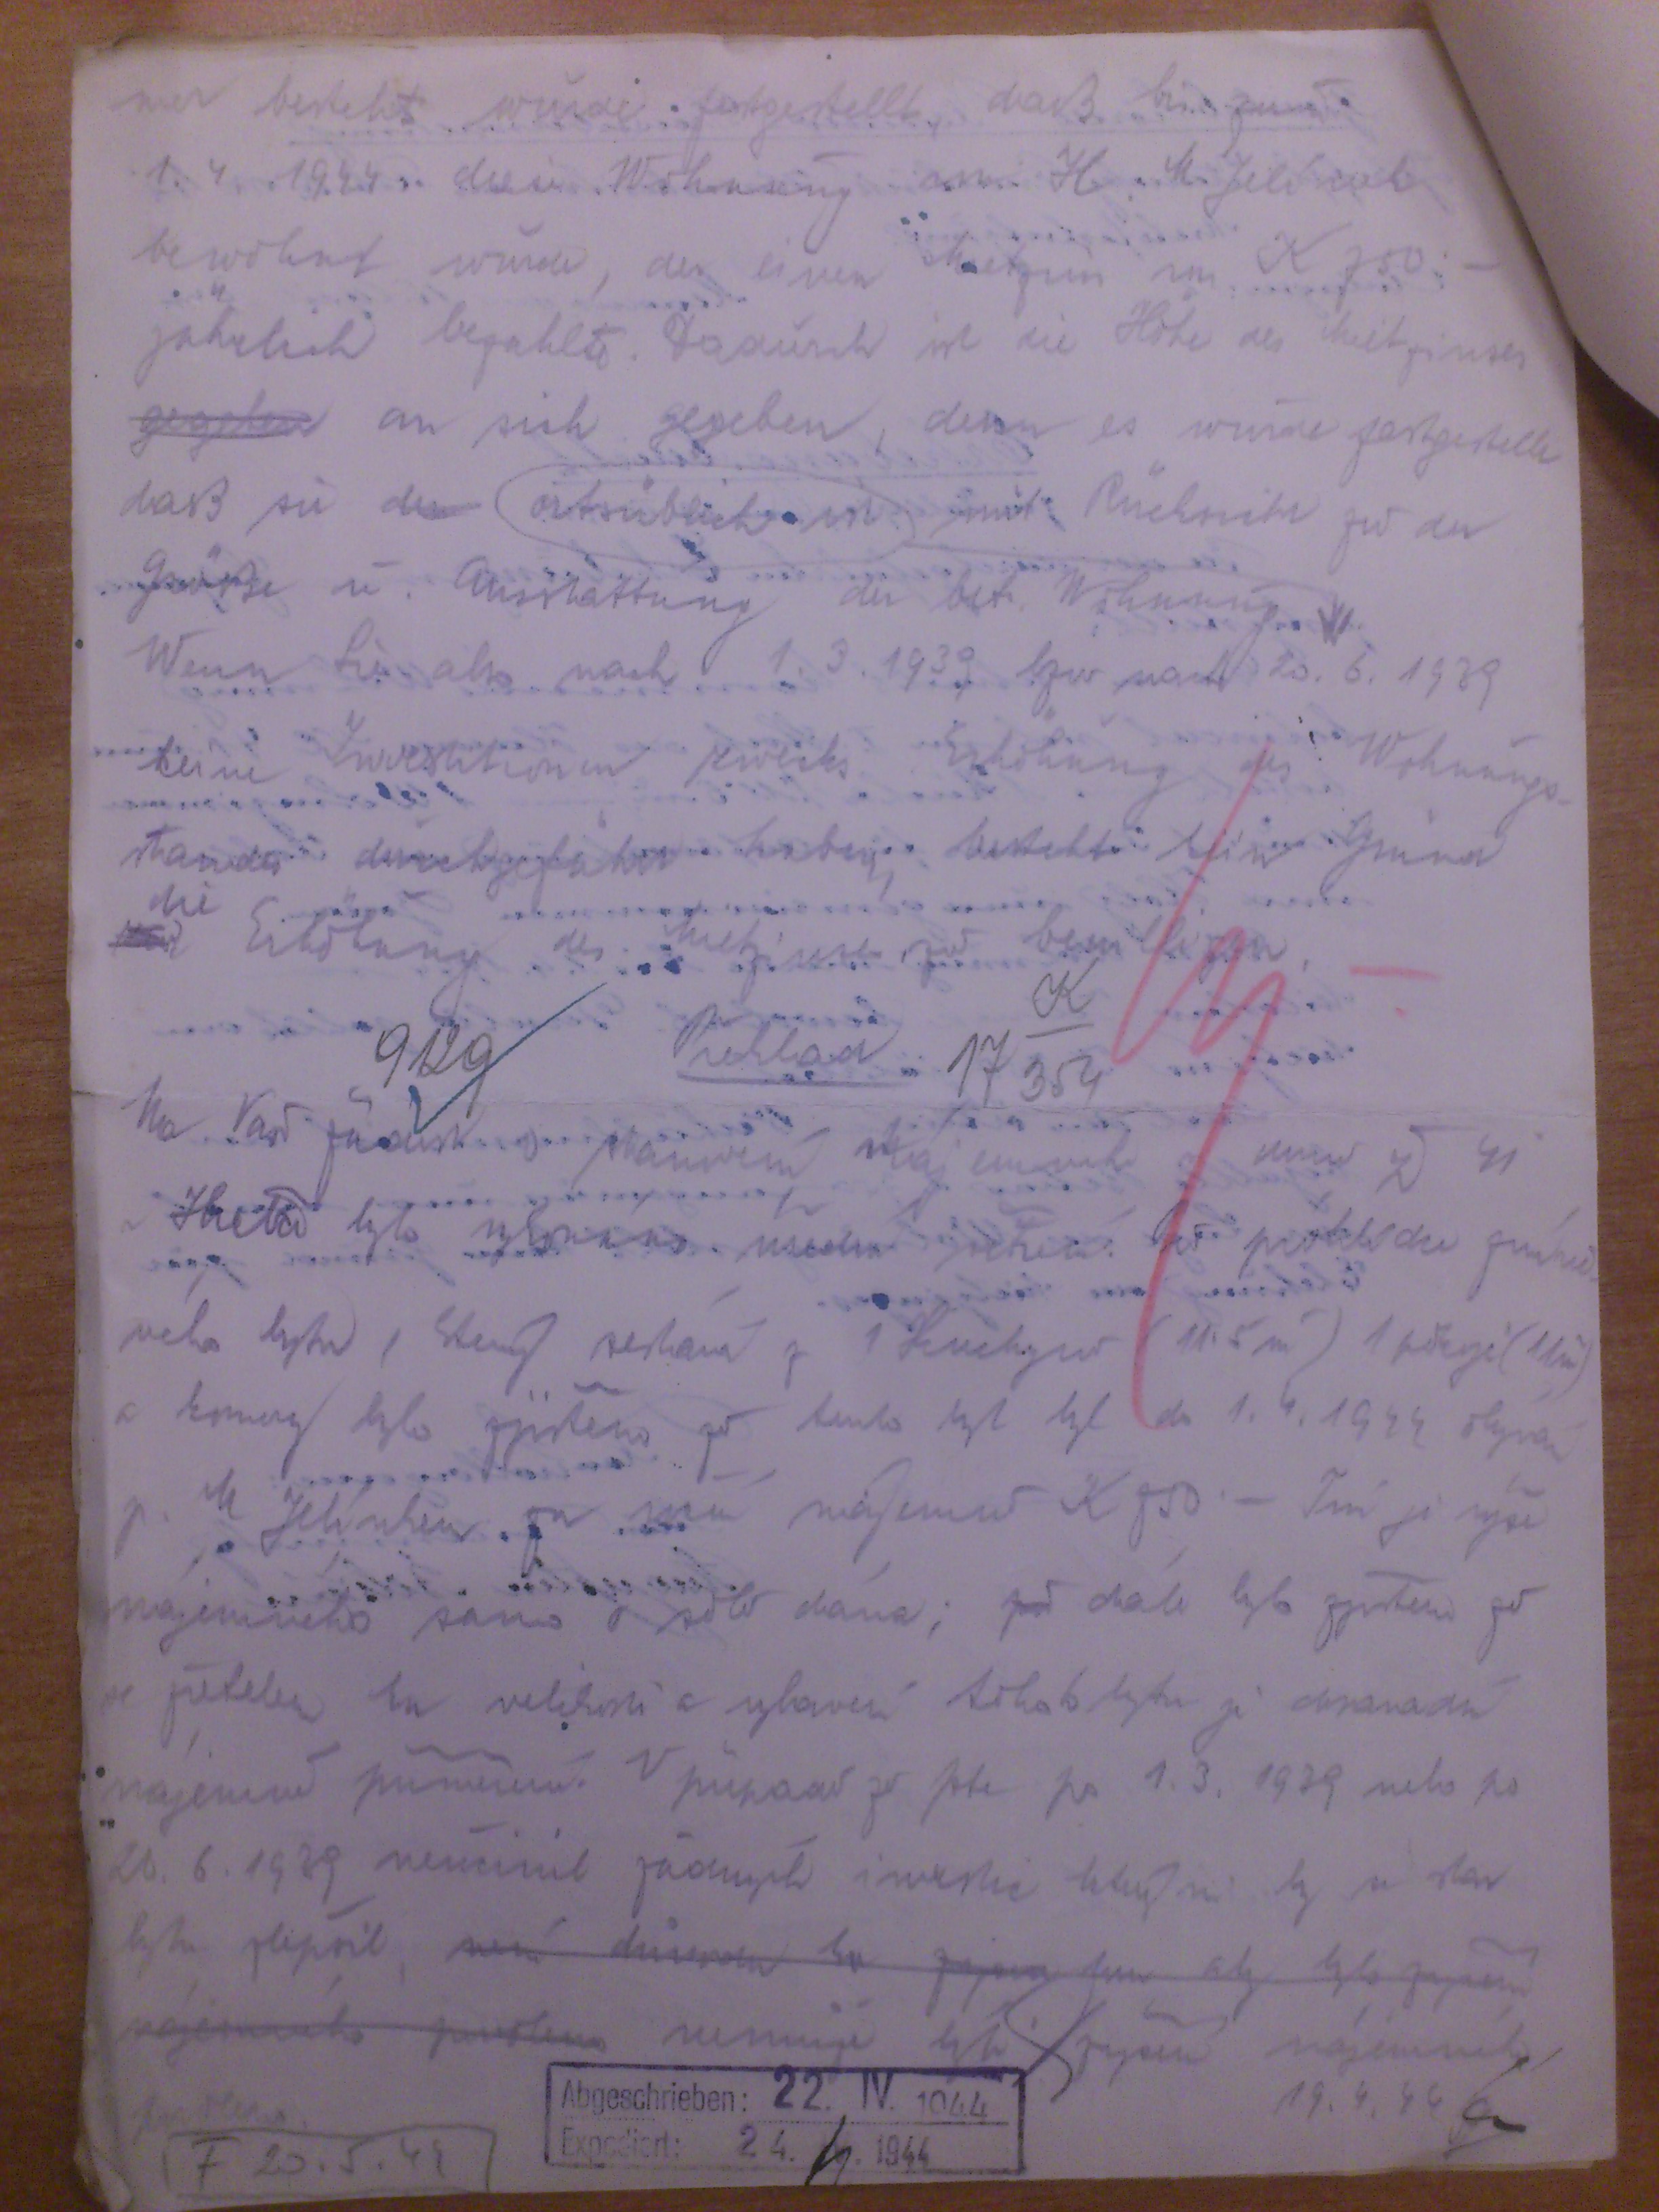 mer besteht wurde festgestellt, daß bis zum
1. 4. 1944 diese Wohnung von H. M. Jelínek
bewohnt wurde, der einen Mietzins von K 750.-
jährlich bezahlte. Dadurch ist die Höhe des Mietzinses
gegeben an sich gegeben, denn es wurde festgestellt
daß sie der ortsüblich ist mit Rücksicht zu der
Größe u. Ausstattung der betr. Wohnung
Wenn Sie also nach 1. 3. 1939 bzw nach 20. 6. 1939
keine Investitionen zwecks Erhöhung des Wohnungs-
standes durchgeführt haben, besteht kein Grund
die
Erhöhung des Mietzinses zu bewilligen.
9129 Překlad 17 K 354
Na Vaší žádost o stanovení nájemného z domu 41
bylo vykonáno úřední šetření. Po prohlídce
ného bytu, který sestává z 1 kuchyně (11.5 m²) 1 pokoje (11m²)
a komory bylo zjištěno že tento byt byl do 1. 4. 1944 obýván
p. M Jelínkem za roční nájemné K 750.- Tím je výše
nájemného sama o sobě dána; že dále bylo zjištěno že
se zřetelem ku velikosti a vybavení tohoto bytu je dosavadní
nájemné přiměřené. V případě že jste po 1. 3. 1939 nebo po
20. 6. 1939 neučinil žádných investic kterými by se stav
bytu zlepšil, není důvodu aby bylo zvýšení
nájemného povoleno nemůže býti zvýšení nájemného
povoleno. 19. 4. 44
F 20. 5. 44
Abgeschrieben: 22. IV. 1944
Expediert: 24. 1944